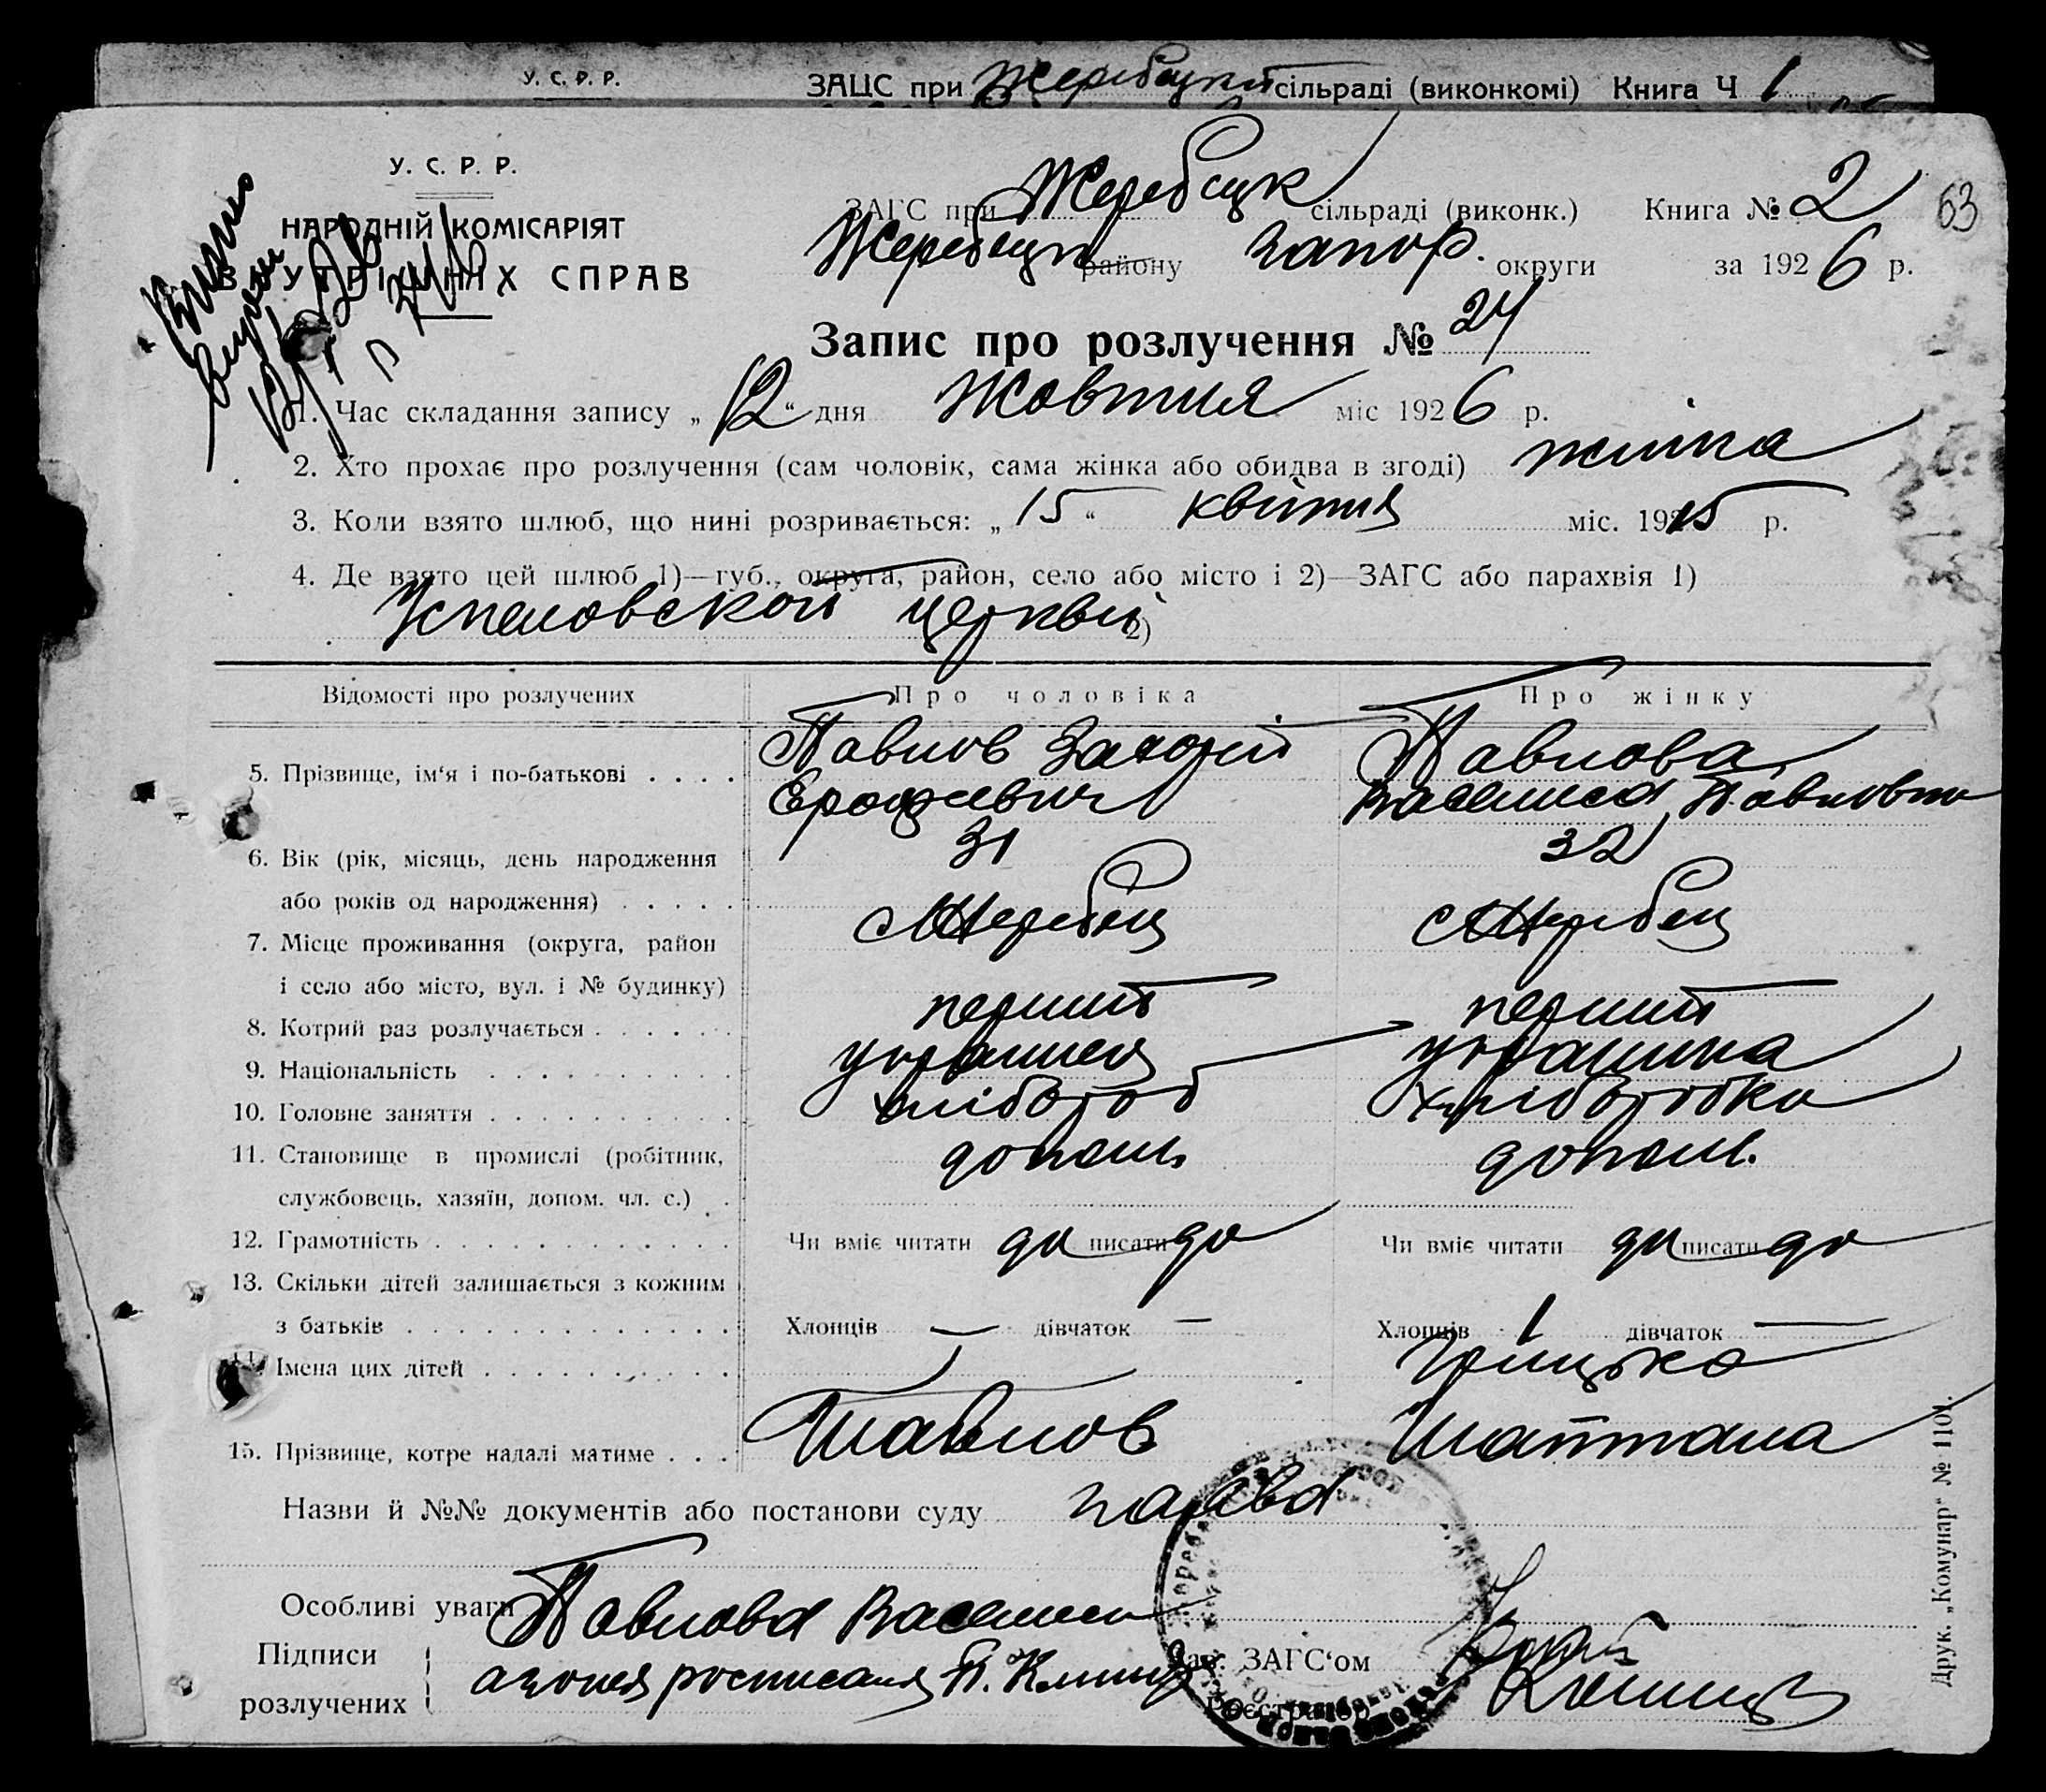 У. С. Р. Р. ЗАЦС при Жеребецкій сільраді (виконкомі) Книга Ч 1
У. С. Р. Р.
НАРОДНІЙ КОМІСАРІЯТ
ВНУТРІШНІХ СПРАВ
ЗАГС при Жеребецк сільраді (виконк.) Книга № 2 63
Жеребецк району Запор. округи за 1926 р.
Запис про розлучення № 24
1. Час складання запису „12“ дня Жовтня міс 1926 р.
2. Хто прохає про розлучення (сам чоловік, сама жінка або обидва в згоді) жінка
3. Коли взято шлюб, що нині розривається: „15“ квітня міс. 1915 р.
4. Де взято цей шлюб 1)—губ., округа, район, село або місто і 2)—ЗАГС або парахвія 1)
церквы 2)
Відомості про розлучених Про чоловіка Про жінку
5. Прізвище, ім‘я і по-батькові . . . . Павлов Захорій Павлова
Ерофеевич Василиса Павловна
6. Вік (рік, місяць, день народження 31 32
або років од народження) . . . . .
7. Місце проживання (округа, район с Жеребец с Жеребец
і село або місто, вул. і № будинку)
8. Котрий раз розлучається . . . . . . перший перший
9. Національність . . . . . . . . . . українец українка
10. Головне заняття . . . . . . . . . . хлібороб хліборобка
11. Становище в промислі (робітник, допом. допом.
службовець, хазяїн, допом. чл. с.) .
12. Грамотність . . . . . . . . . . . . Чи вміє читати да писати да Чи вміє читати да писати да
13. Скільки дітей залишається з кожним
з батьків . . . . . . . . . . . . . Хлопців — дівчаток — Хлопців 1 дівчаток —
14. Імена цих дітей . . . . . . . . . . — Грицько
15. Прізвище, котре надалі матиме . . . Павлов Шаптала
Назви й №№ документів або постанови суду
Особливі уваги Павлова Василиса
Підписи
розлучених
а за нея росписался П.
Зав. ЗАГС‘ом
Реєстратор
Друк. „Комунар“ № 1101.